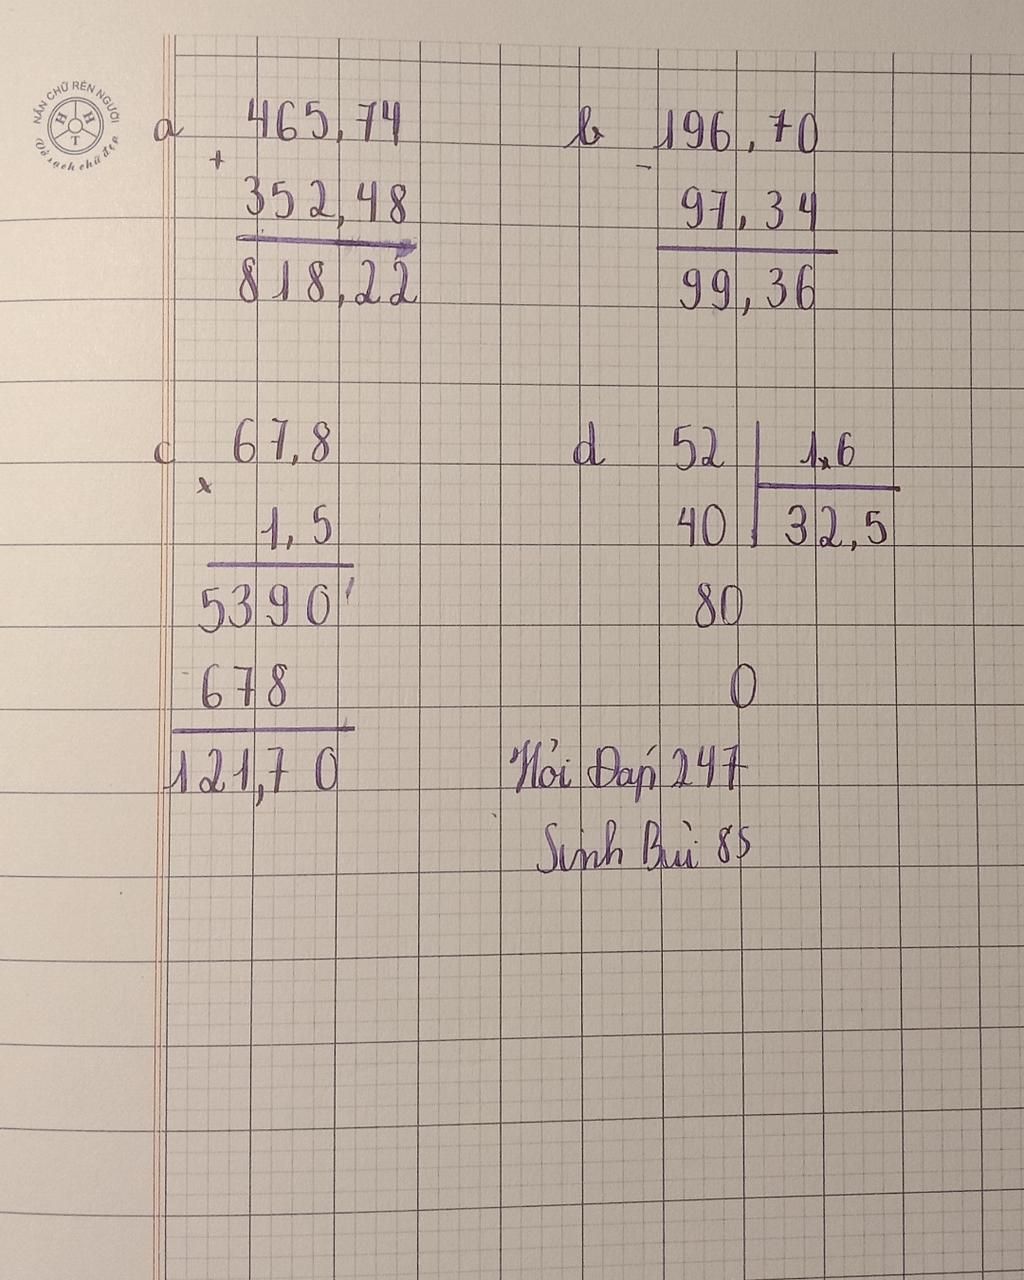 NẮN CHỮ RÈN NGƯỜI
H H T
Vở sạch chữ đẹp
a 465,74
+
352,48
818,22
b 196,70
-
97,34
99,36
c 67,8
x
1,5
5390
678
121,70
d 52 1,6
40 32,5
80
0
Hỏi Đáp 247
Sinh Bùi 85